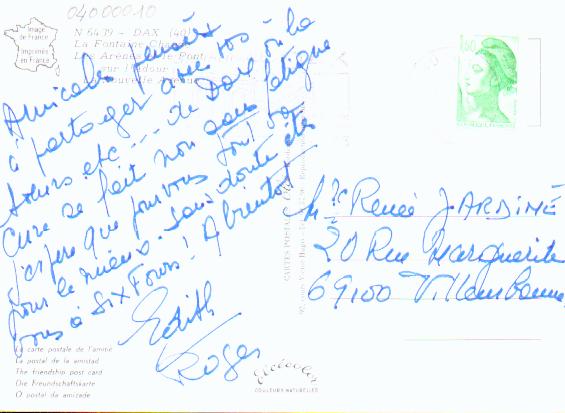 040 000 10
Image
de France
Imprimés
en France
N 6439 - DAX (40)
La Fontaine
Les Arènes - Le Pont
sur l'Adour
La Nouvelle Avenue
Amicales pensées
à partager avec vos
soeurs etc --- de Dax où la
Cure se fait non sans fatigue
j'espère que pour vous tout va
pour le mieux. Sans doute êtes
vous à Six Fours! A bientôt
Edith
Roger
1,60
Mle Renée JARDINÉ
20 Rue Marguerite
69100 Villeurbanne
CARTES POSTALES
La carte postale de l'amitié
La postal de la amistad
The friendship post card
Die Freundschaftskarte
O postal da amizade
COULEURS NATURELLES